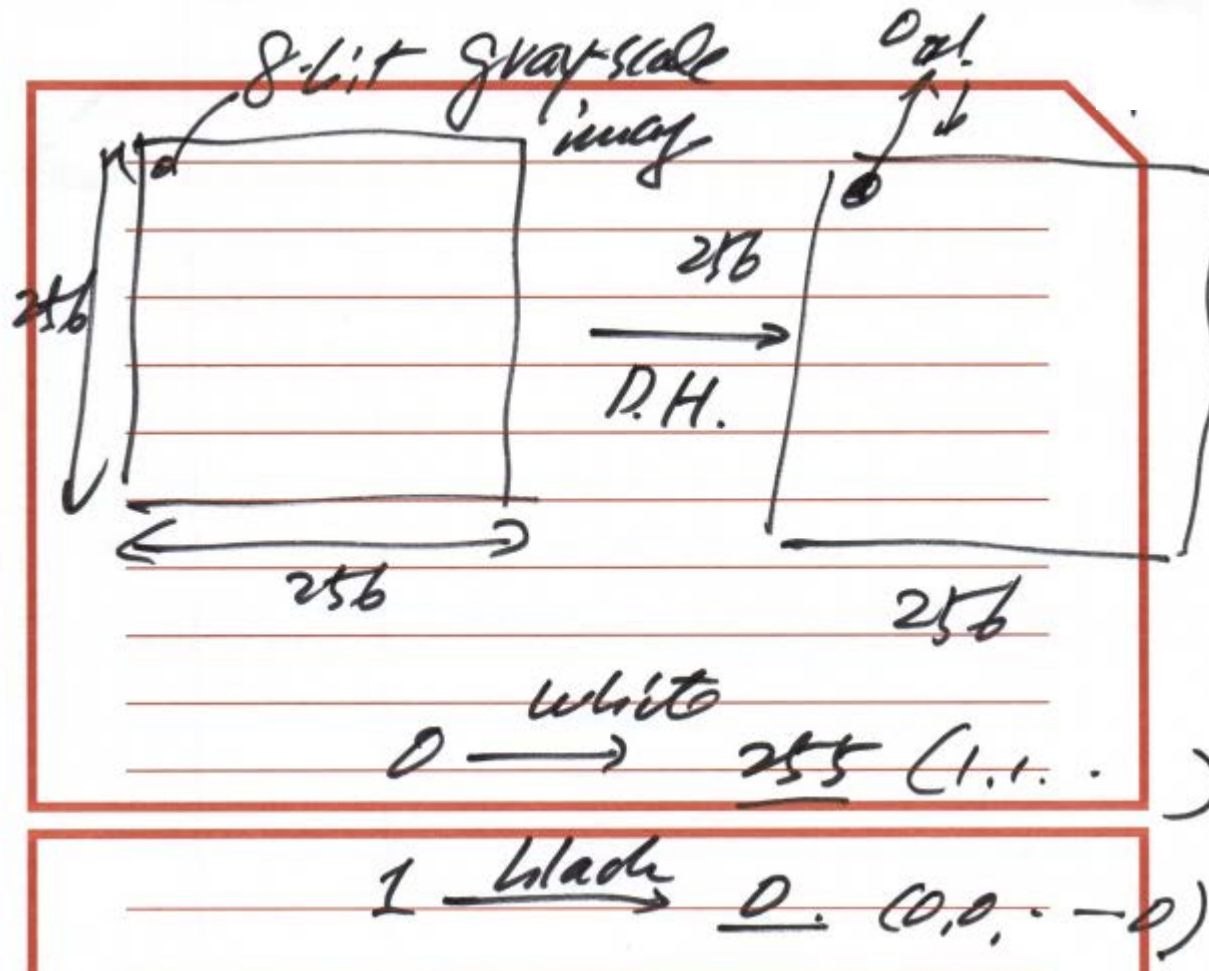 8-bit gray-scale
imag
0 or 1
256
256
D.H.
256
256
0 → white 255 (1.1. . )
1 black → 0. (0,0, · — 0)